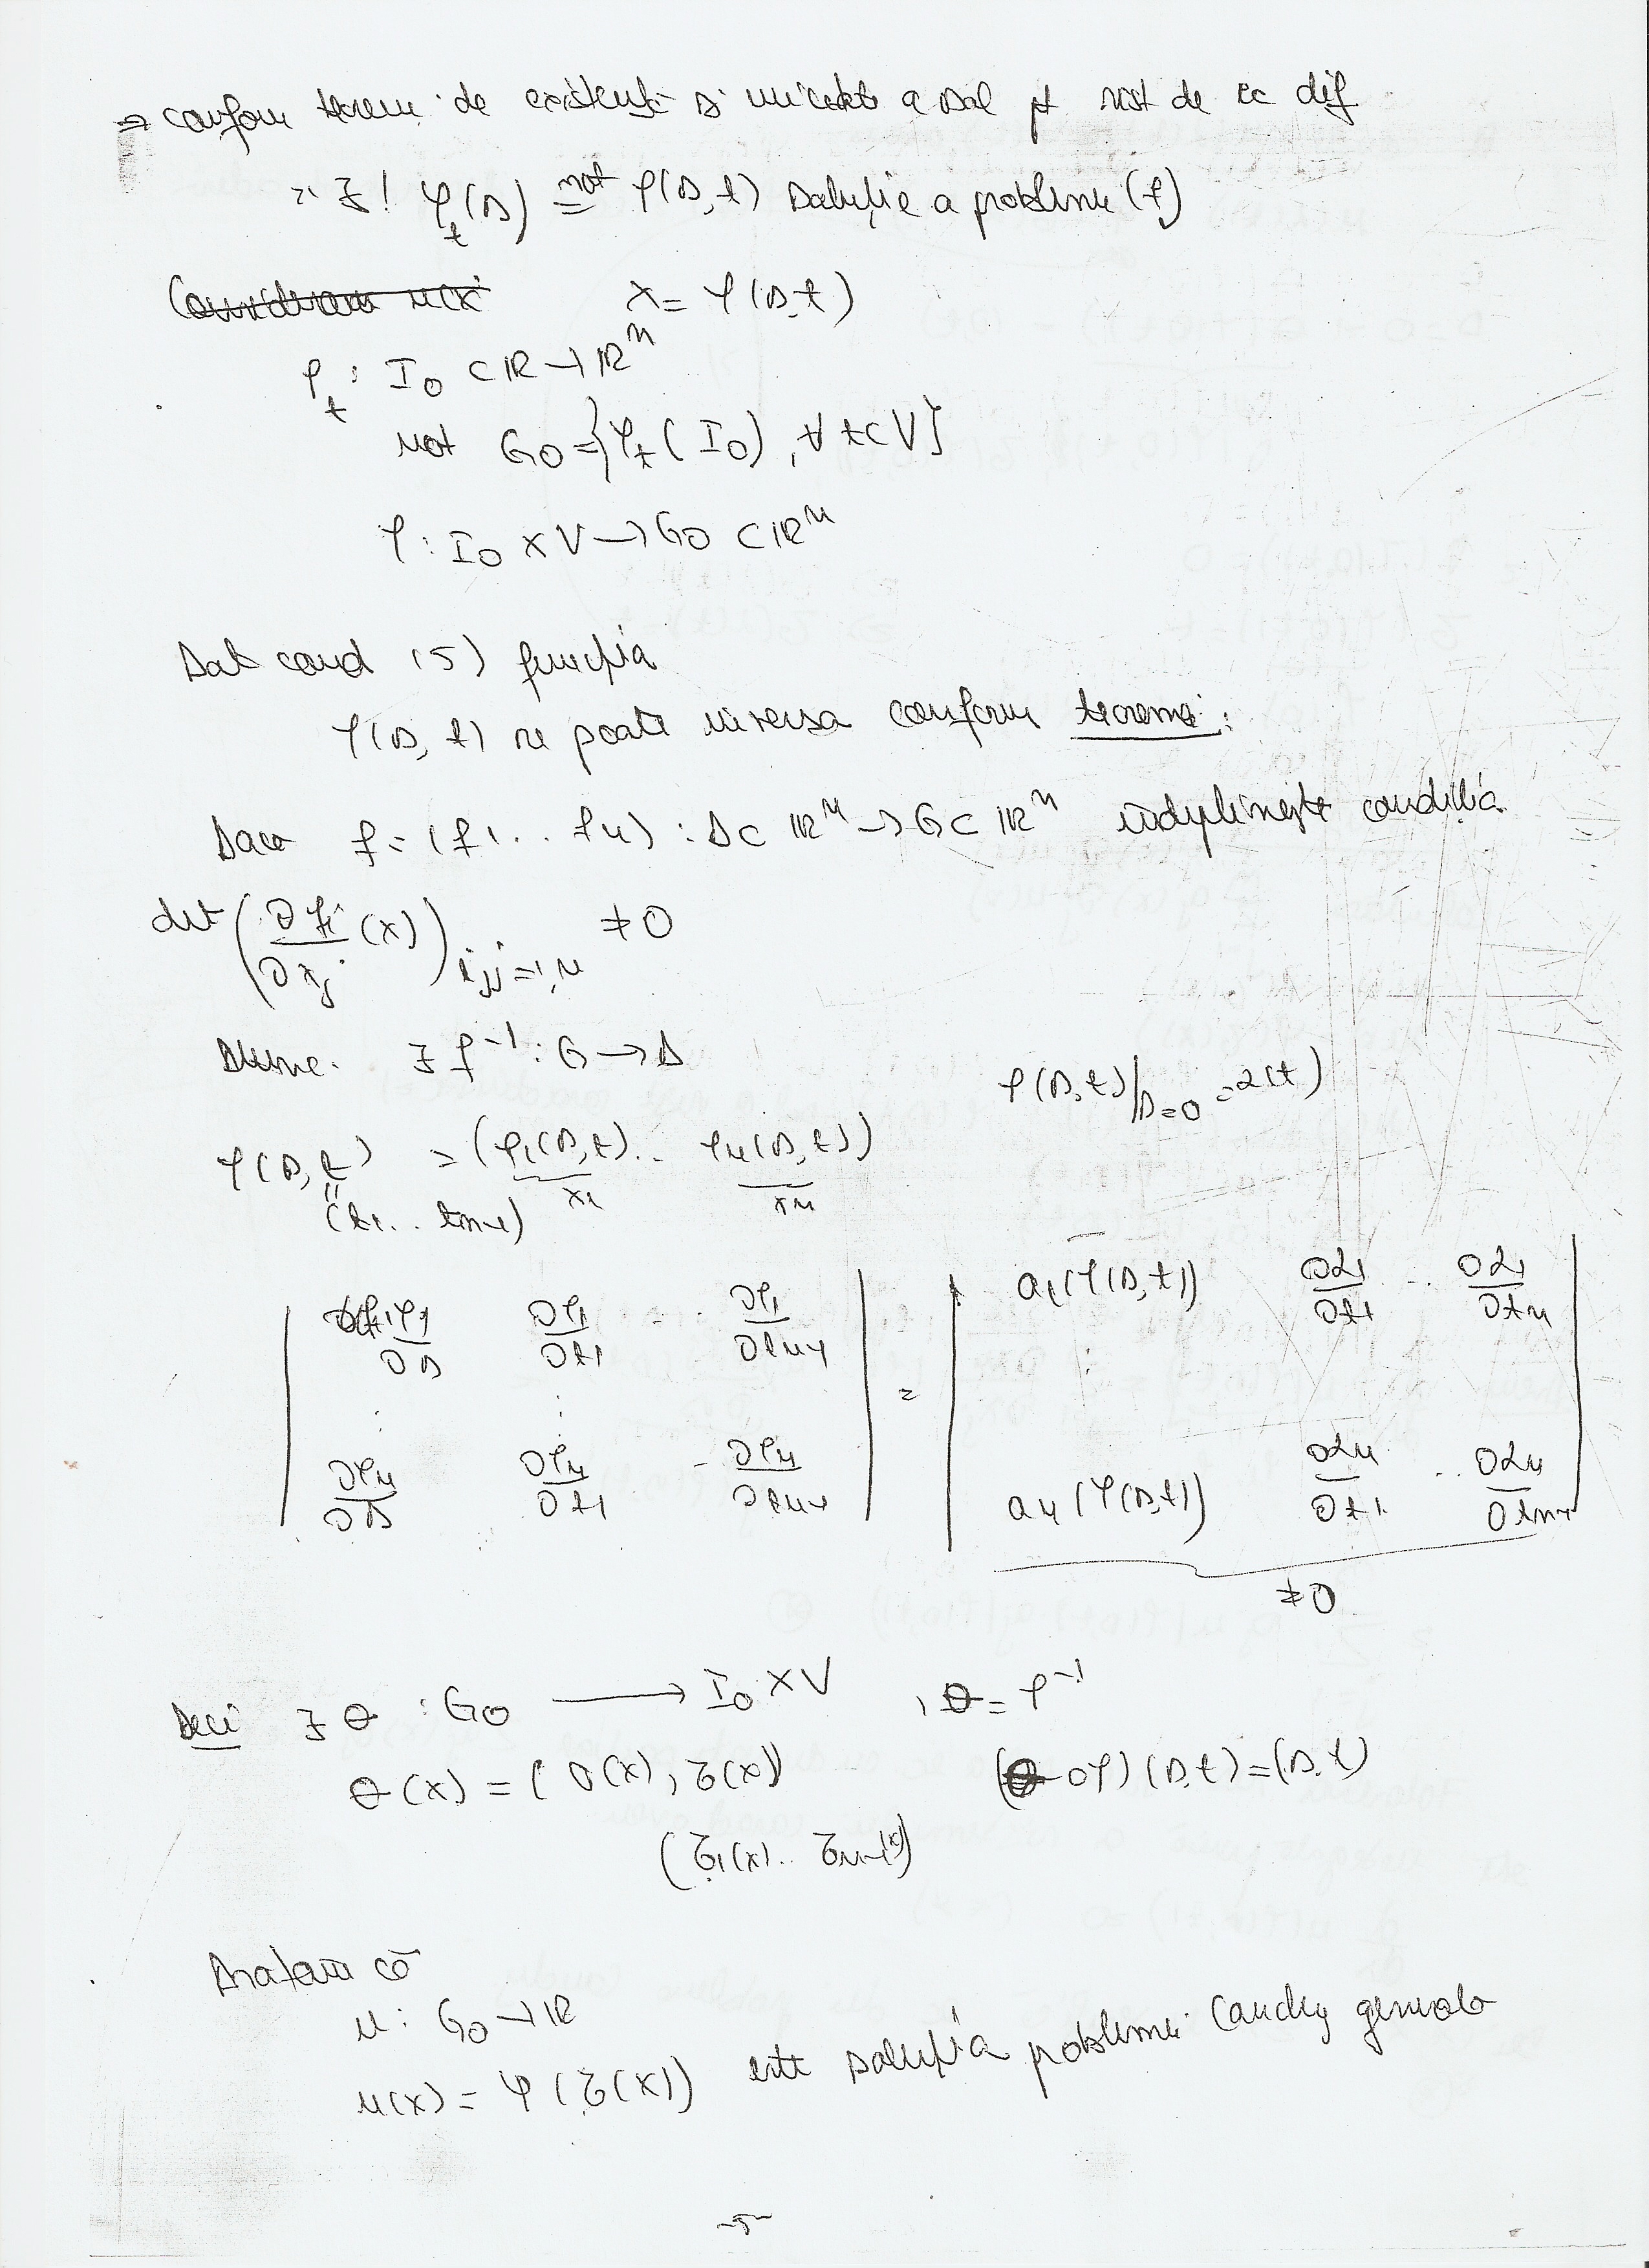 ⇒ conform teorem de existență și unicitate a sol pt sist de ec dif
⇒ ∃! φ_t(s) =^{not} φ(s,t) soluție a problemei (7)
x = φ(s,t)
φ_t : I_0 ⊂ ℝ → ℝ^n
not G_0 = {φ_t(I_0), ∀ t ⊂ V}
φ : I_0 × V → G_0 ⊂ ℝ^n
Dat cond (5) funcția
φ(s,t) se poate inversa conform teoremei:
Daca f = (f_1 .. f_n) : D ⊂ ℝ^n → G ⊂ ℝ^n îndeplinește condiția
det (∂f_i/∂x_j (x))_{i,j=1,n} ≠ 0
Atunci ∃ f^{-1} : G → D
φ(s,t)|_{s=0} = α(t)
φ(s,t) = (φ_1(s,t) .. φ_n(s,t))
(t_1 .. t_{n-1}) x_1 x_n
| ∂φ_1/∂s ∂φ_1/∂t_1 ... ∂φ_1/∂t_{n-1} | = | a_1(φ(s,t)) ∂α_1/∂t_1 .. ∂α_1/∂t_n |
⋮ ⋮ ⋮
| ∂φ_n/∂s ∂φ_n/∂t_1 - ∂φ_n/∂t_{n-1} | | a_n(φ(s,t)) ∂α_n/∂t_1 .. ∂α_n/∂t_{n-1} |
≠ 0
Deci ∃ θ : G_0 → I_0 × V , θ = φ^{-1}
θ(x) = (σ(x), τ(x)) (θ∘φ)(s,t) = (s,t)
(τ_1(x) .. τ_{n-1}(x))
Aratam că
u : G_0 → ℝ
u(x) = ψ(τ(x)) este soluția problemei Cauchy generala
-5-